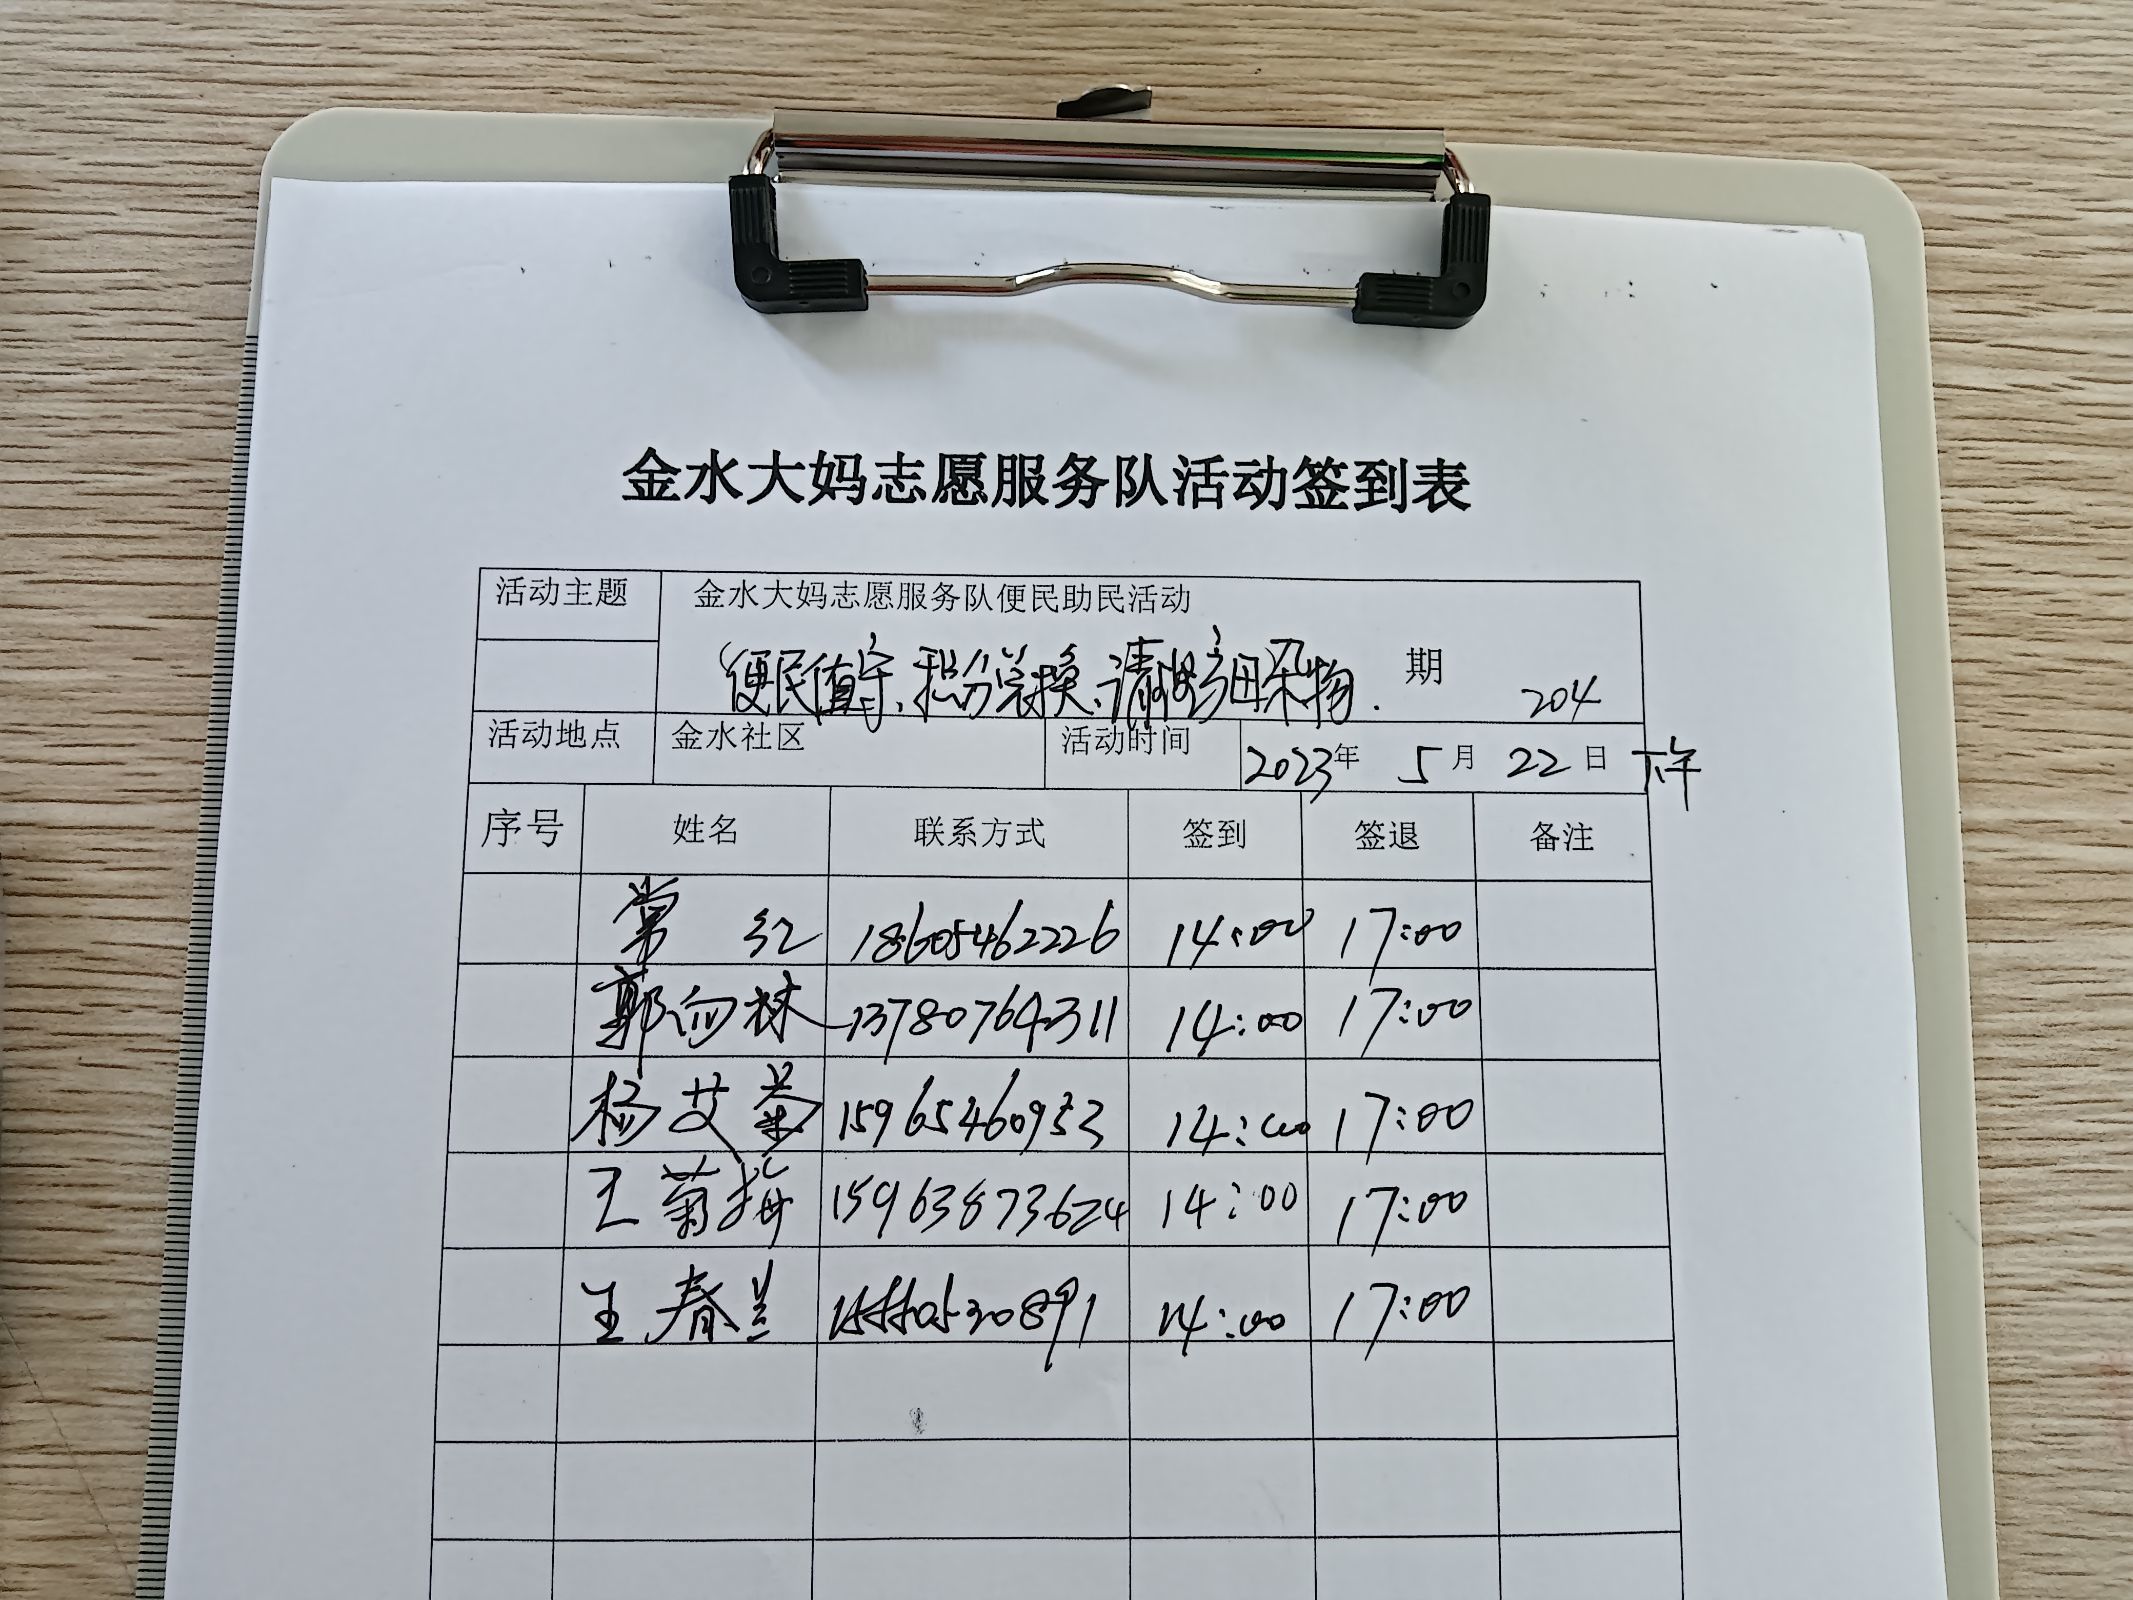 金水大妈志愿服务队活动签到表
活动主题 金水大妈志愿服务队便民助民活动
便民值守、积分兑换、清楼杂物. 期 204
活动地点 金水社区 活动时间 2023年 5月 22日 下午
序号 姓名 联系方式 签到 签退 备注
常红 18605462226 14:00 17:00
郭向林 13780764311 14:00 17:00
杨艾 15965460953 14:00 17:00
王菊梅 15963873624 14:00 17:00
王春兰 14:00 17:00